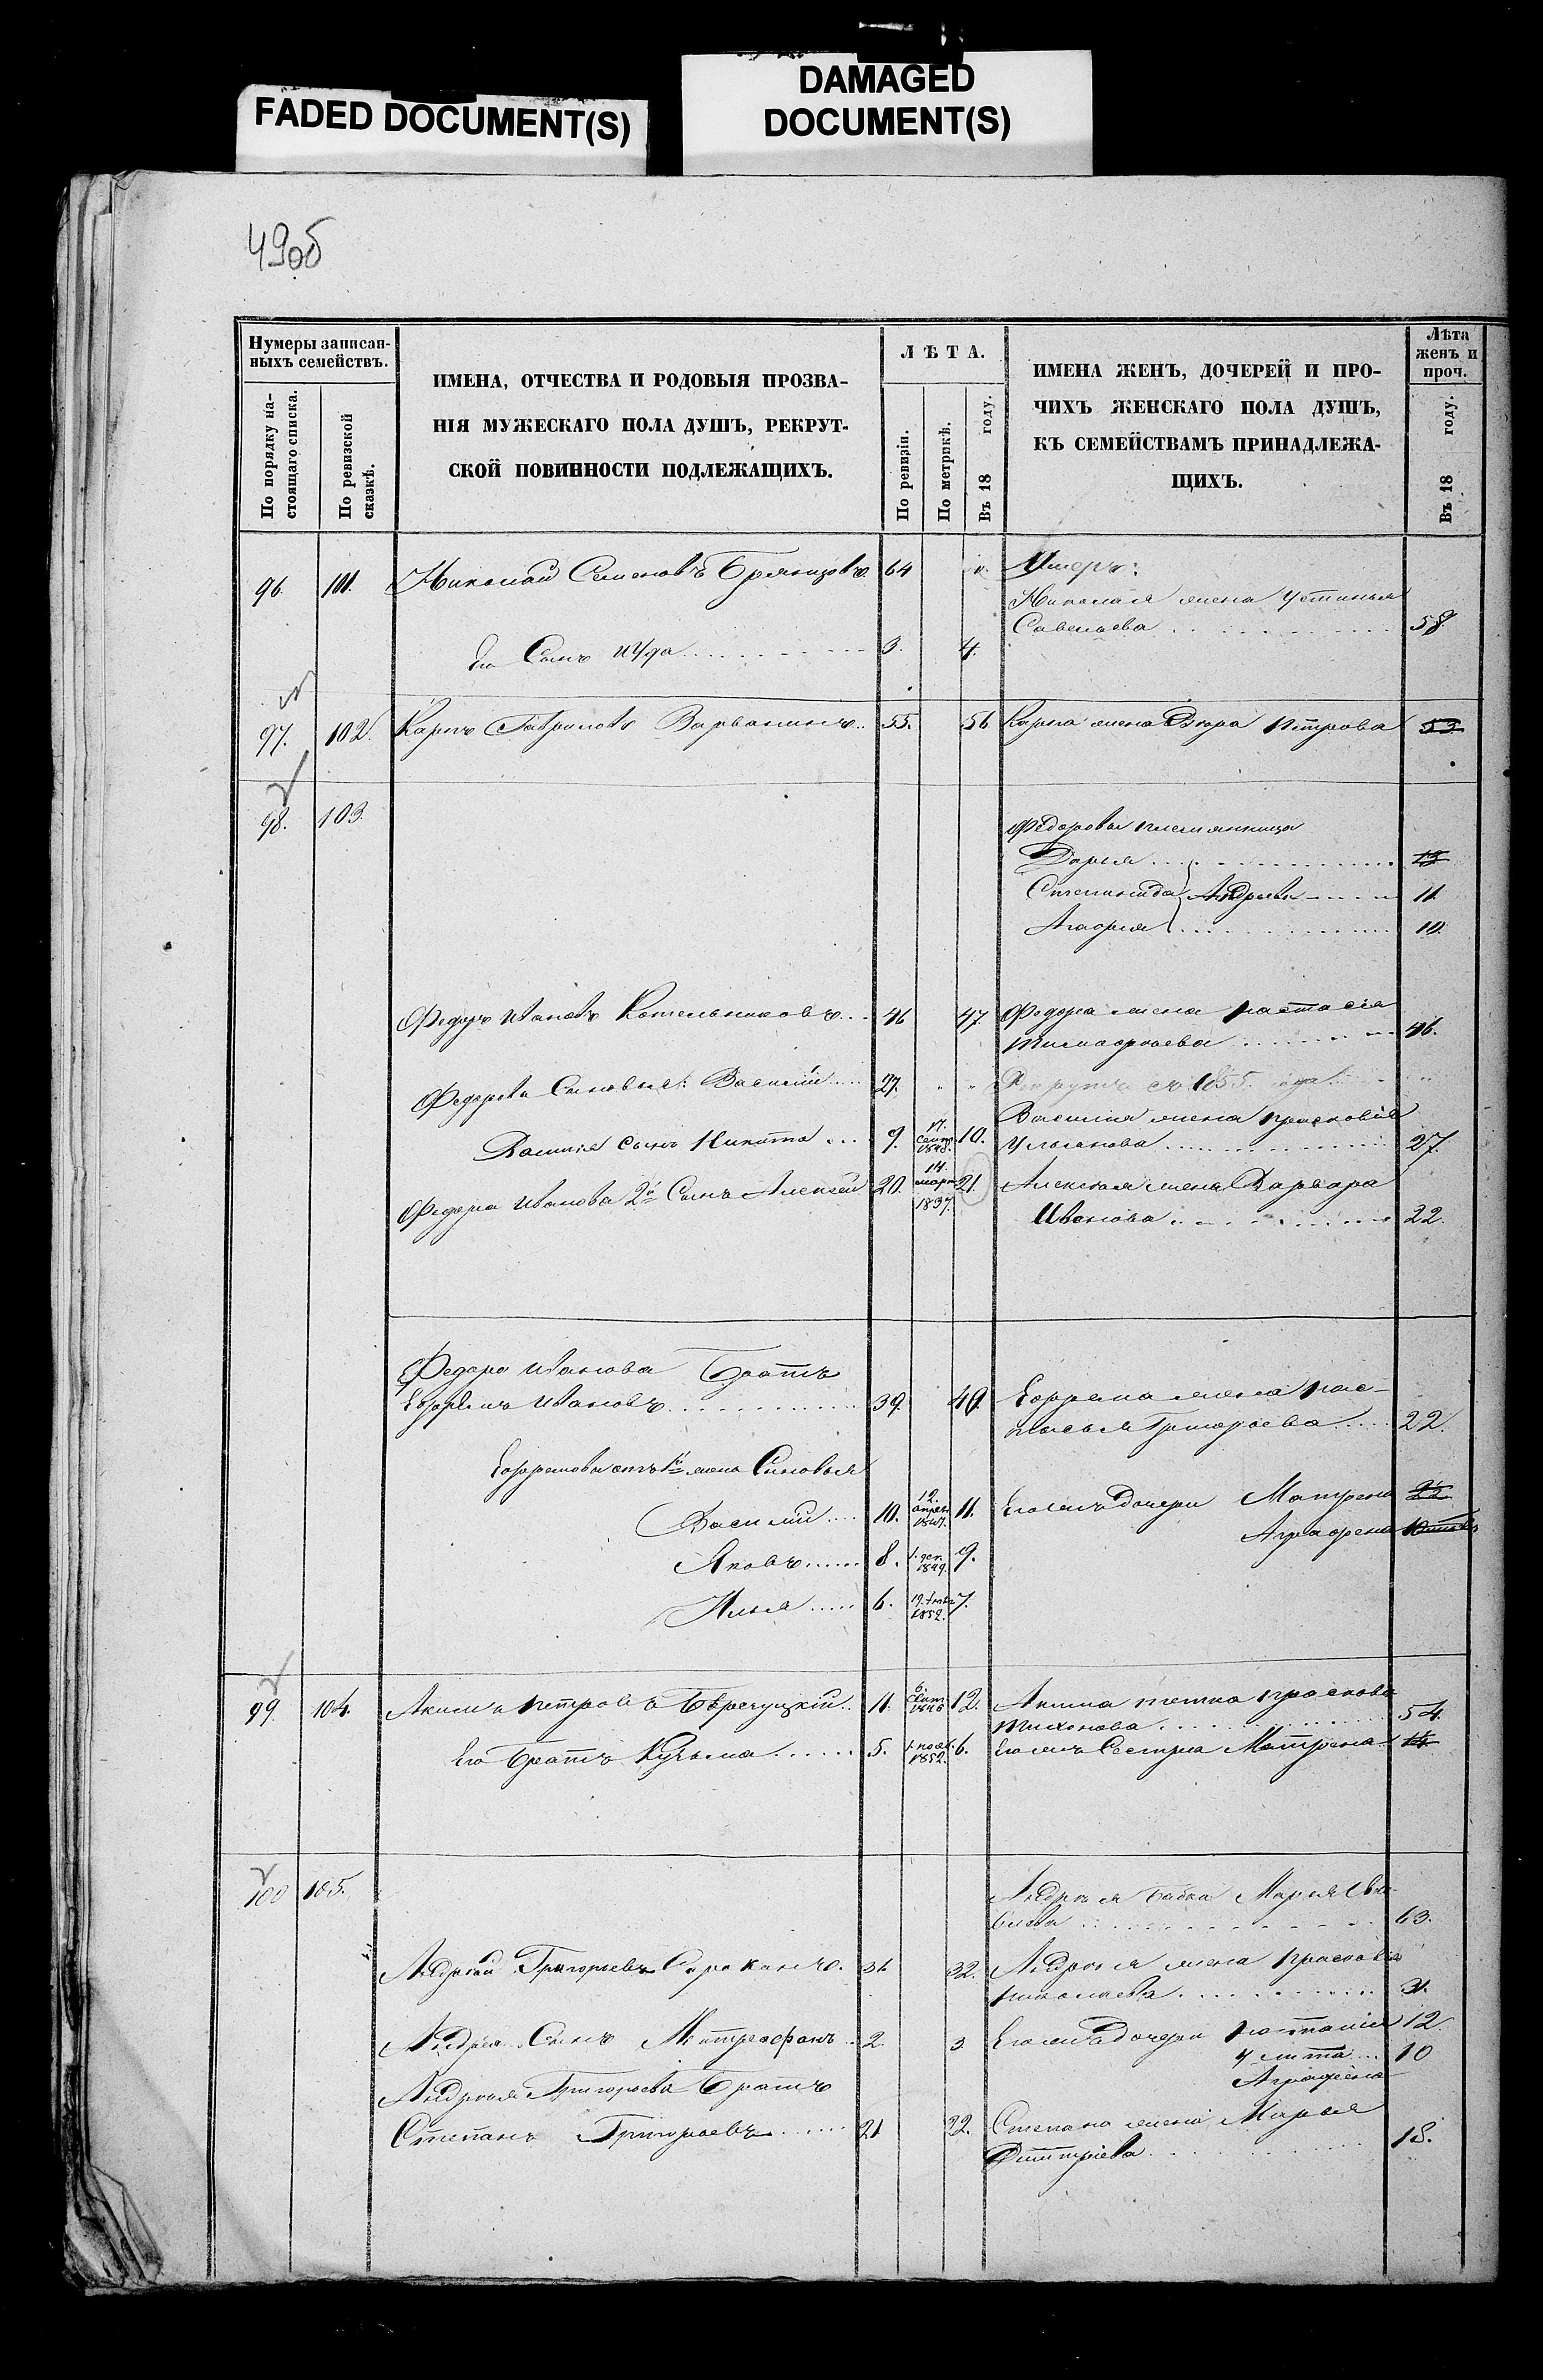 FADED DOCUMENT(S)
DAMAGED
DOCUMENT(S)
49об
Нумеры записан-
ныхъ семействъ.
По порядку на-
стоящаго списка.
По ревизской
сказкѣ.
ИМЕНА, ОТЧЕСТВА И РОДОВЫЯ ПРОЗВА-
НІЯ МУЖЕСКАГО ПОЛА ДУШЪ, РЕКРУТ-
СКОЙ ПОВИННОСТИ ПОДЛЕЖАЩИХЪ.
ЛѢТА.
По ревизіи.
По метрикѣ.
Въ 18 году.
ИМЕНА ЖЕНЪ, ДОЧЕРЕЙ И ПРО-
ЧИХЪ ЖЕНСКАГО ПОЛА ДУШЪ,
КЪ СЕМЕЙСТВАМЪ ПРИНАДЛЕЖА-
ЩИХЪ.
Лѣта
женъ и
проч.
Въ 18 году.
96. 101. Николай Семеновъ Брянцовъ. 64 Умеръ:
Николая жена Устинья
Савельева 58
Его Сынъ Иуда 3. 4.
97. 102. Карпъ Гавриловъ Варванинъ 55. 56 Карпа жена Ѳіора Петрова 53
98. 103. Федоровы племянницы
Дарья 13
Степанида Андреевы 11
Агафья 10.
Федоръ Ивановъ Котельниковъ 46 47. Федора жена Настасья
Тимофѣева 46.
Федоровы Сыновья: Василій 27. Рекрутъ съ 1855 года
Василія жена Прасковья
Василія сынъ Никита 9. 17. Сент. 1848. 10. Ульянова 27.
Федора Иванова 2й Сынъ Алексѣй 20. 14. март 1837. 21. Алексѣя жена Варвара
Иванова 22.
Федора Иванова Братъ
Ефремъ Ивановъ 39. 40. Ефрема жена Нас-
тасья Григорьева 22.
Ефремовы отъ 1й жены Сыновья
Василій 10. 12. апрел. 1847. 11. Его же дочери Матрена
Аграфена
Яковъ 8. 1. дек. 1849. 9.
Илья 6. 19. 1852. 7.
99. 104. Акимъ Петровъ 11. 6. Сент. 1846 12. Акима тетка Прасковья
Тихонова 54.
Его Братъ Кузьма 5. 1. нояб. 1852. 6. Его же Сестра Матрена
100 105. Андрея бабка Марья
63.
Андрей Григорьевъ Сорокинъ. 31 32. Андрея жена Прасковья
Николаева 31.
Андрея Сынъ Митрофанъ 2. 3 Его же дочери Наталья 12.
Улита 10
Аграфена
Андрея Григорьева Братъ
Степанъ Григорьевъ 21 22. Степана жена Марья
Дмитріева 18.